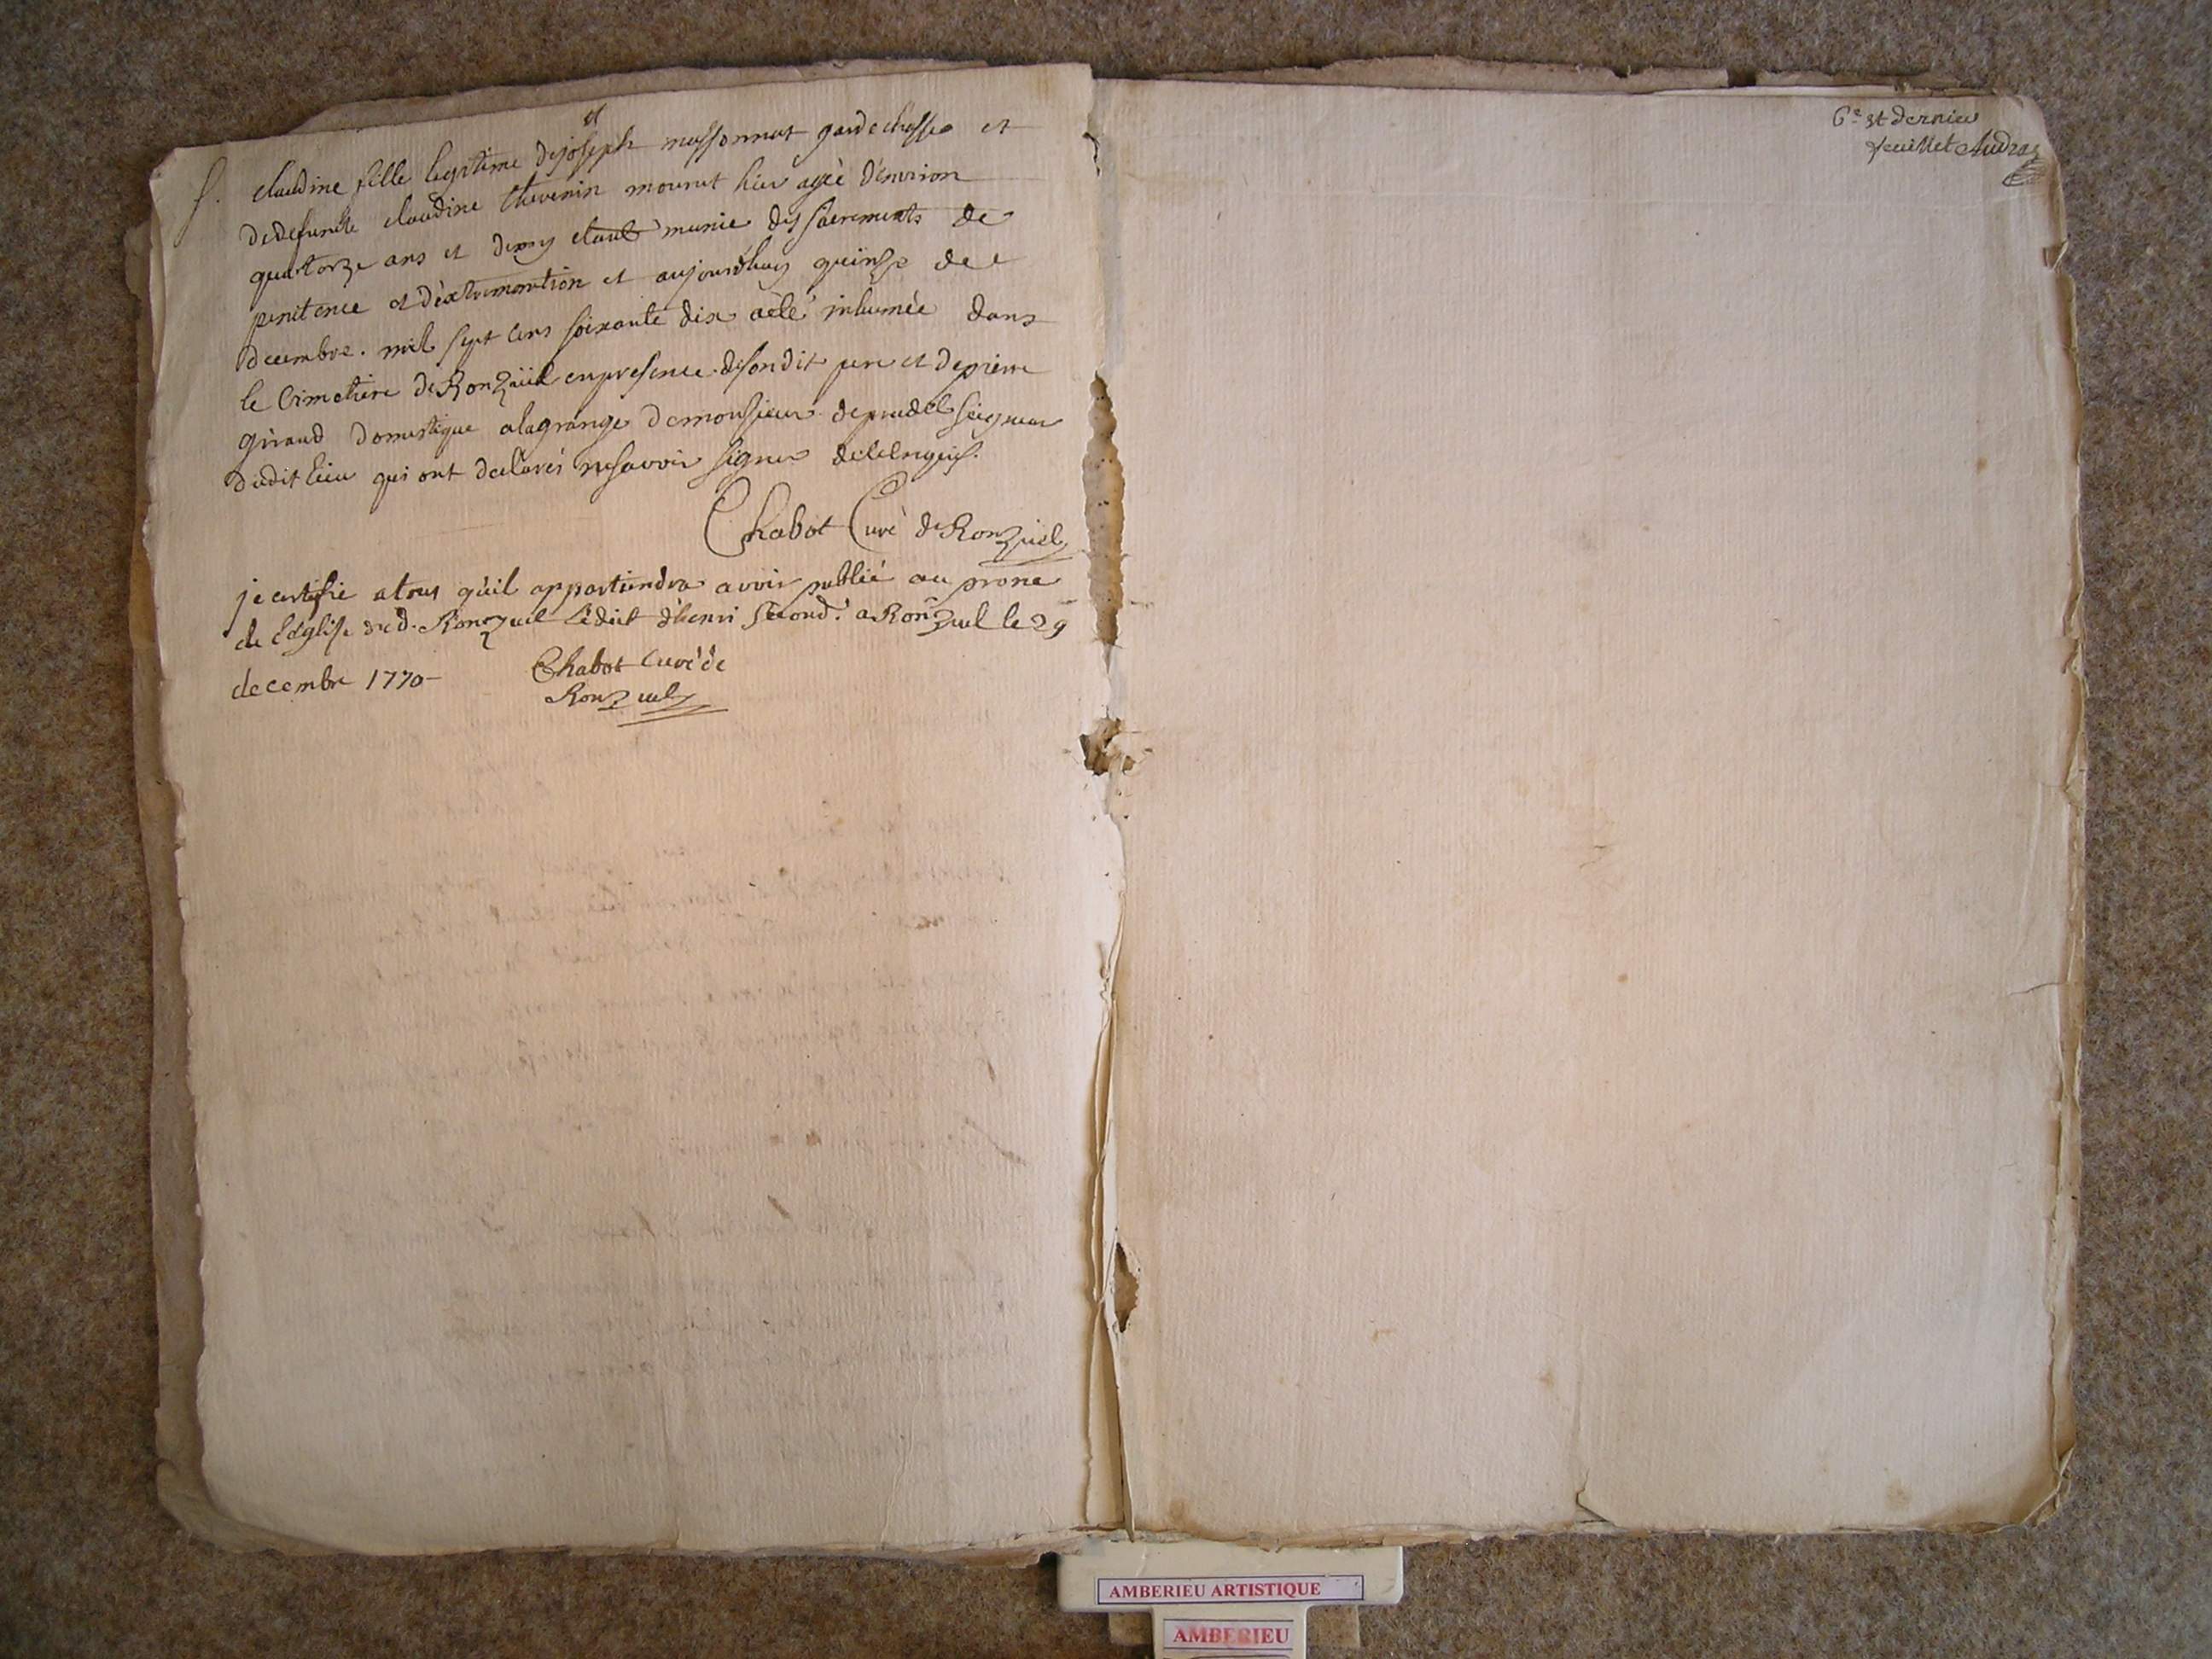 et
S. claudine fille legitime de joseph massonnat gardechasse et
dedefuncte claudine thevenin mourut hier ageè d'environ
quattorze ans et demy etant munie des sacrements de
penitence et d'extremontion et aujourd'huy quinze de
decembre. mil sept cens soixante dix aèté inhumée dans
le Cimetiere de Ronzuël enpresence desondit pere et depierre
giraud domestique alagrange demonsieur depradel seigneur
dudit lieu qui ont declarés nesavoir signer de
Chabot Curé de Ronzuel
je certifie atous qu'il appartiendra avoir publié au prone
de l'église dud. Ronzuel l'édit d'henri second. a Ronzuel le 29
decembre 1770
Chabot curé de
Ronzuel
6e et dernier
feuillet Audras
AMBERIEU ARTISTIQUE
AMBERIEU